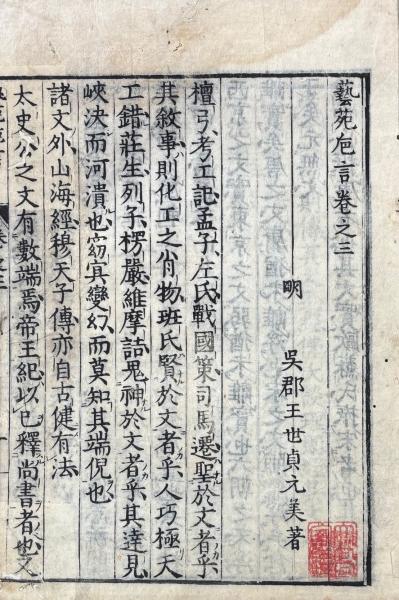 藝苑卮言卷之三
明　吳郡王世貞元美著
檀弓考工記孟子左氏戰國策司馬遷聖於文者乎
其敘事則化工之肖物班氏賢於文者乎人巧極天
工錯莊生列子楞嚴維摩詰鬼神於文者乎其達見
峽決而河潰也窈冥變幻而莫知其端倪也
諸文外山海經穆天子傳亦自古健有法
太史公之文有數端焉帝王紀以已釋尚書者也又